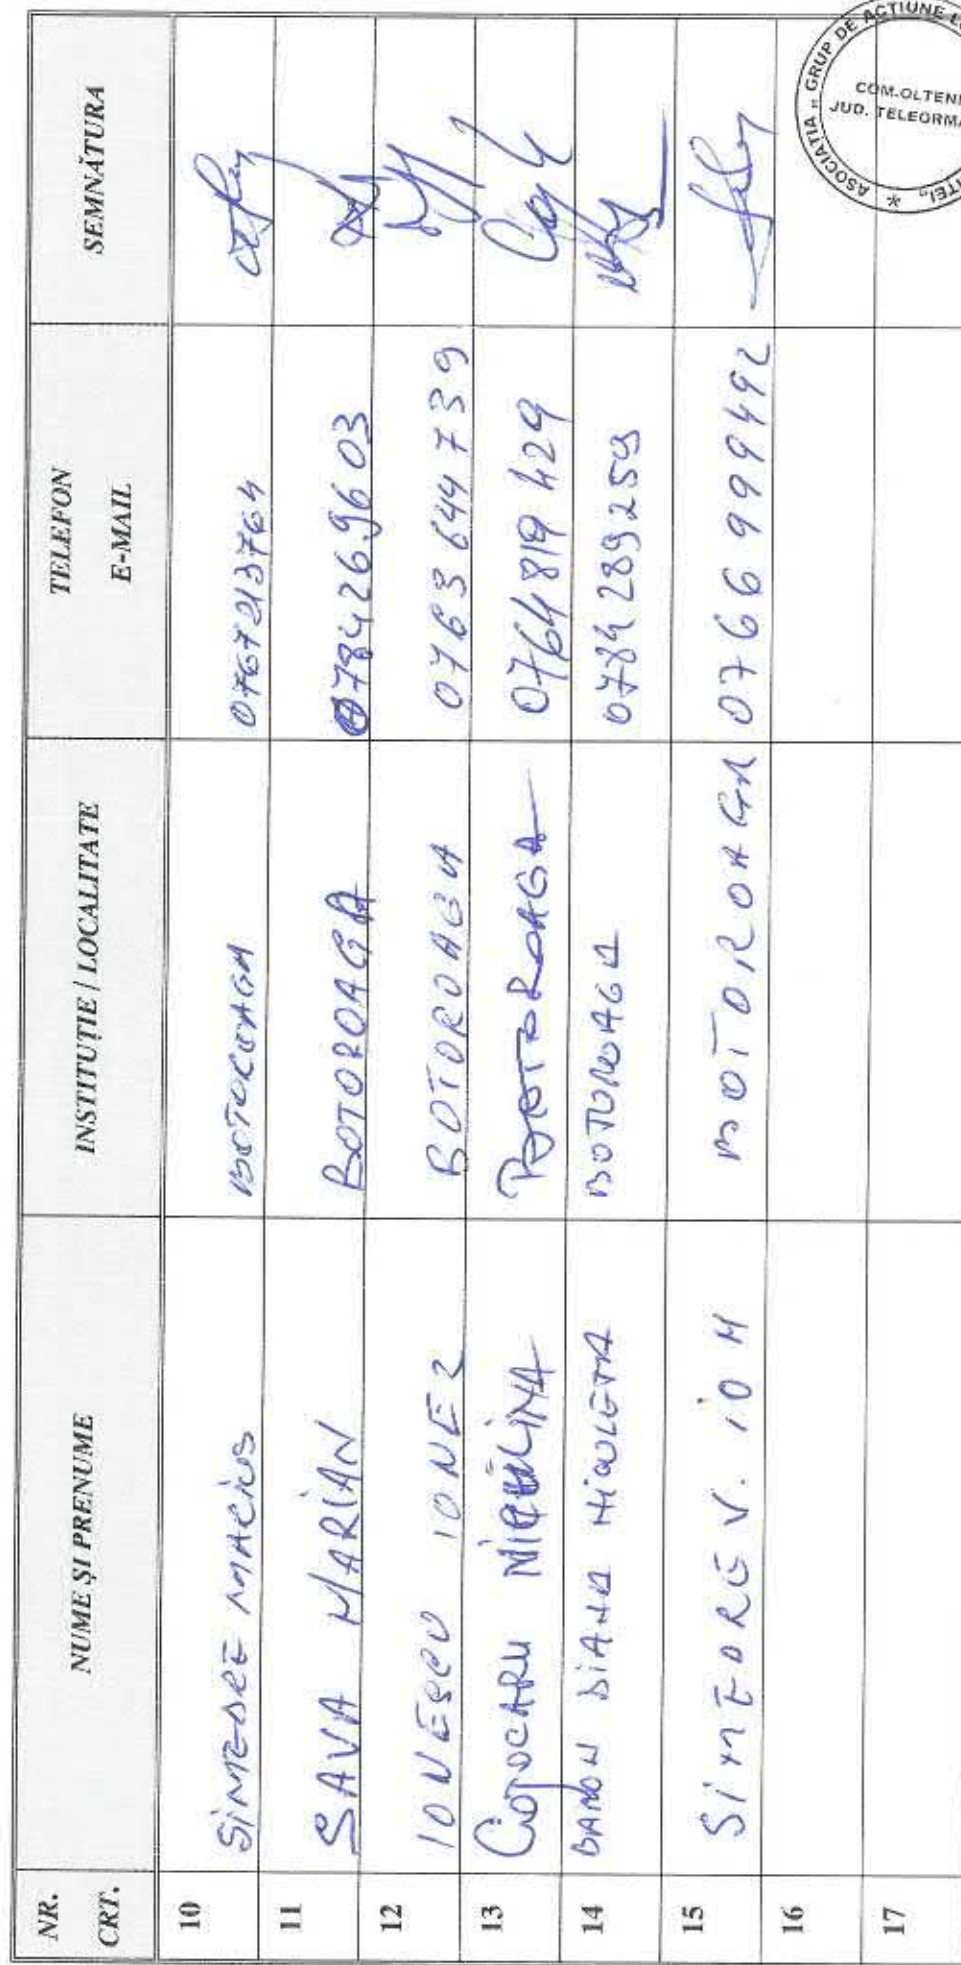 NR. CRT. NUME ȘI PRENUME INSTITUȚIE / LOCALITATE TELEFON E-MAIL SEMNĂTURA
10 SIMEDRE MARIUS BOTOROAGA 0767213764
11 SAVA MARIAN BOTOROAGA 0784269603
12 IONESCU IONEL BOTOROAGA 0763644739
13 COJOCARU BOTOROAGA 0764819429
14 DIANA NICOLETA BOTOROAGA 0784289259
15 SIMEDRE V. ION BOTOROAGA 0766999492
16
17
ASOCIAȚIA „ GRUP DE ACȚIUNE
COM.OLTENI
JUD. TELEORMA